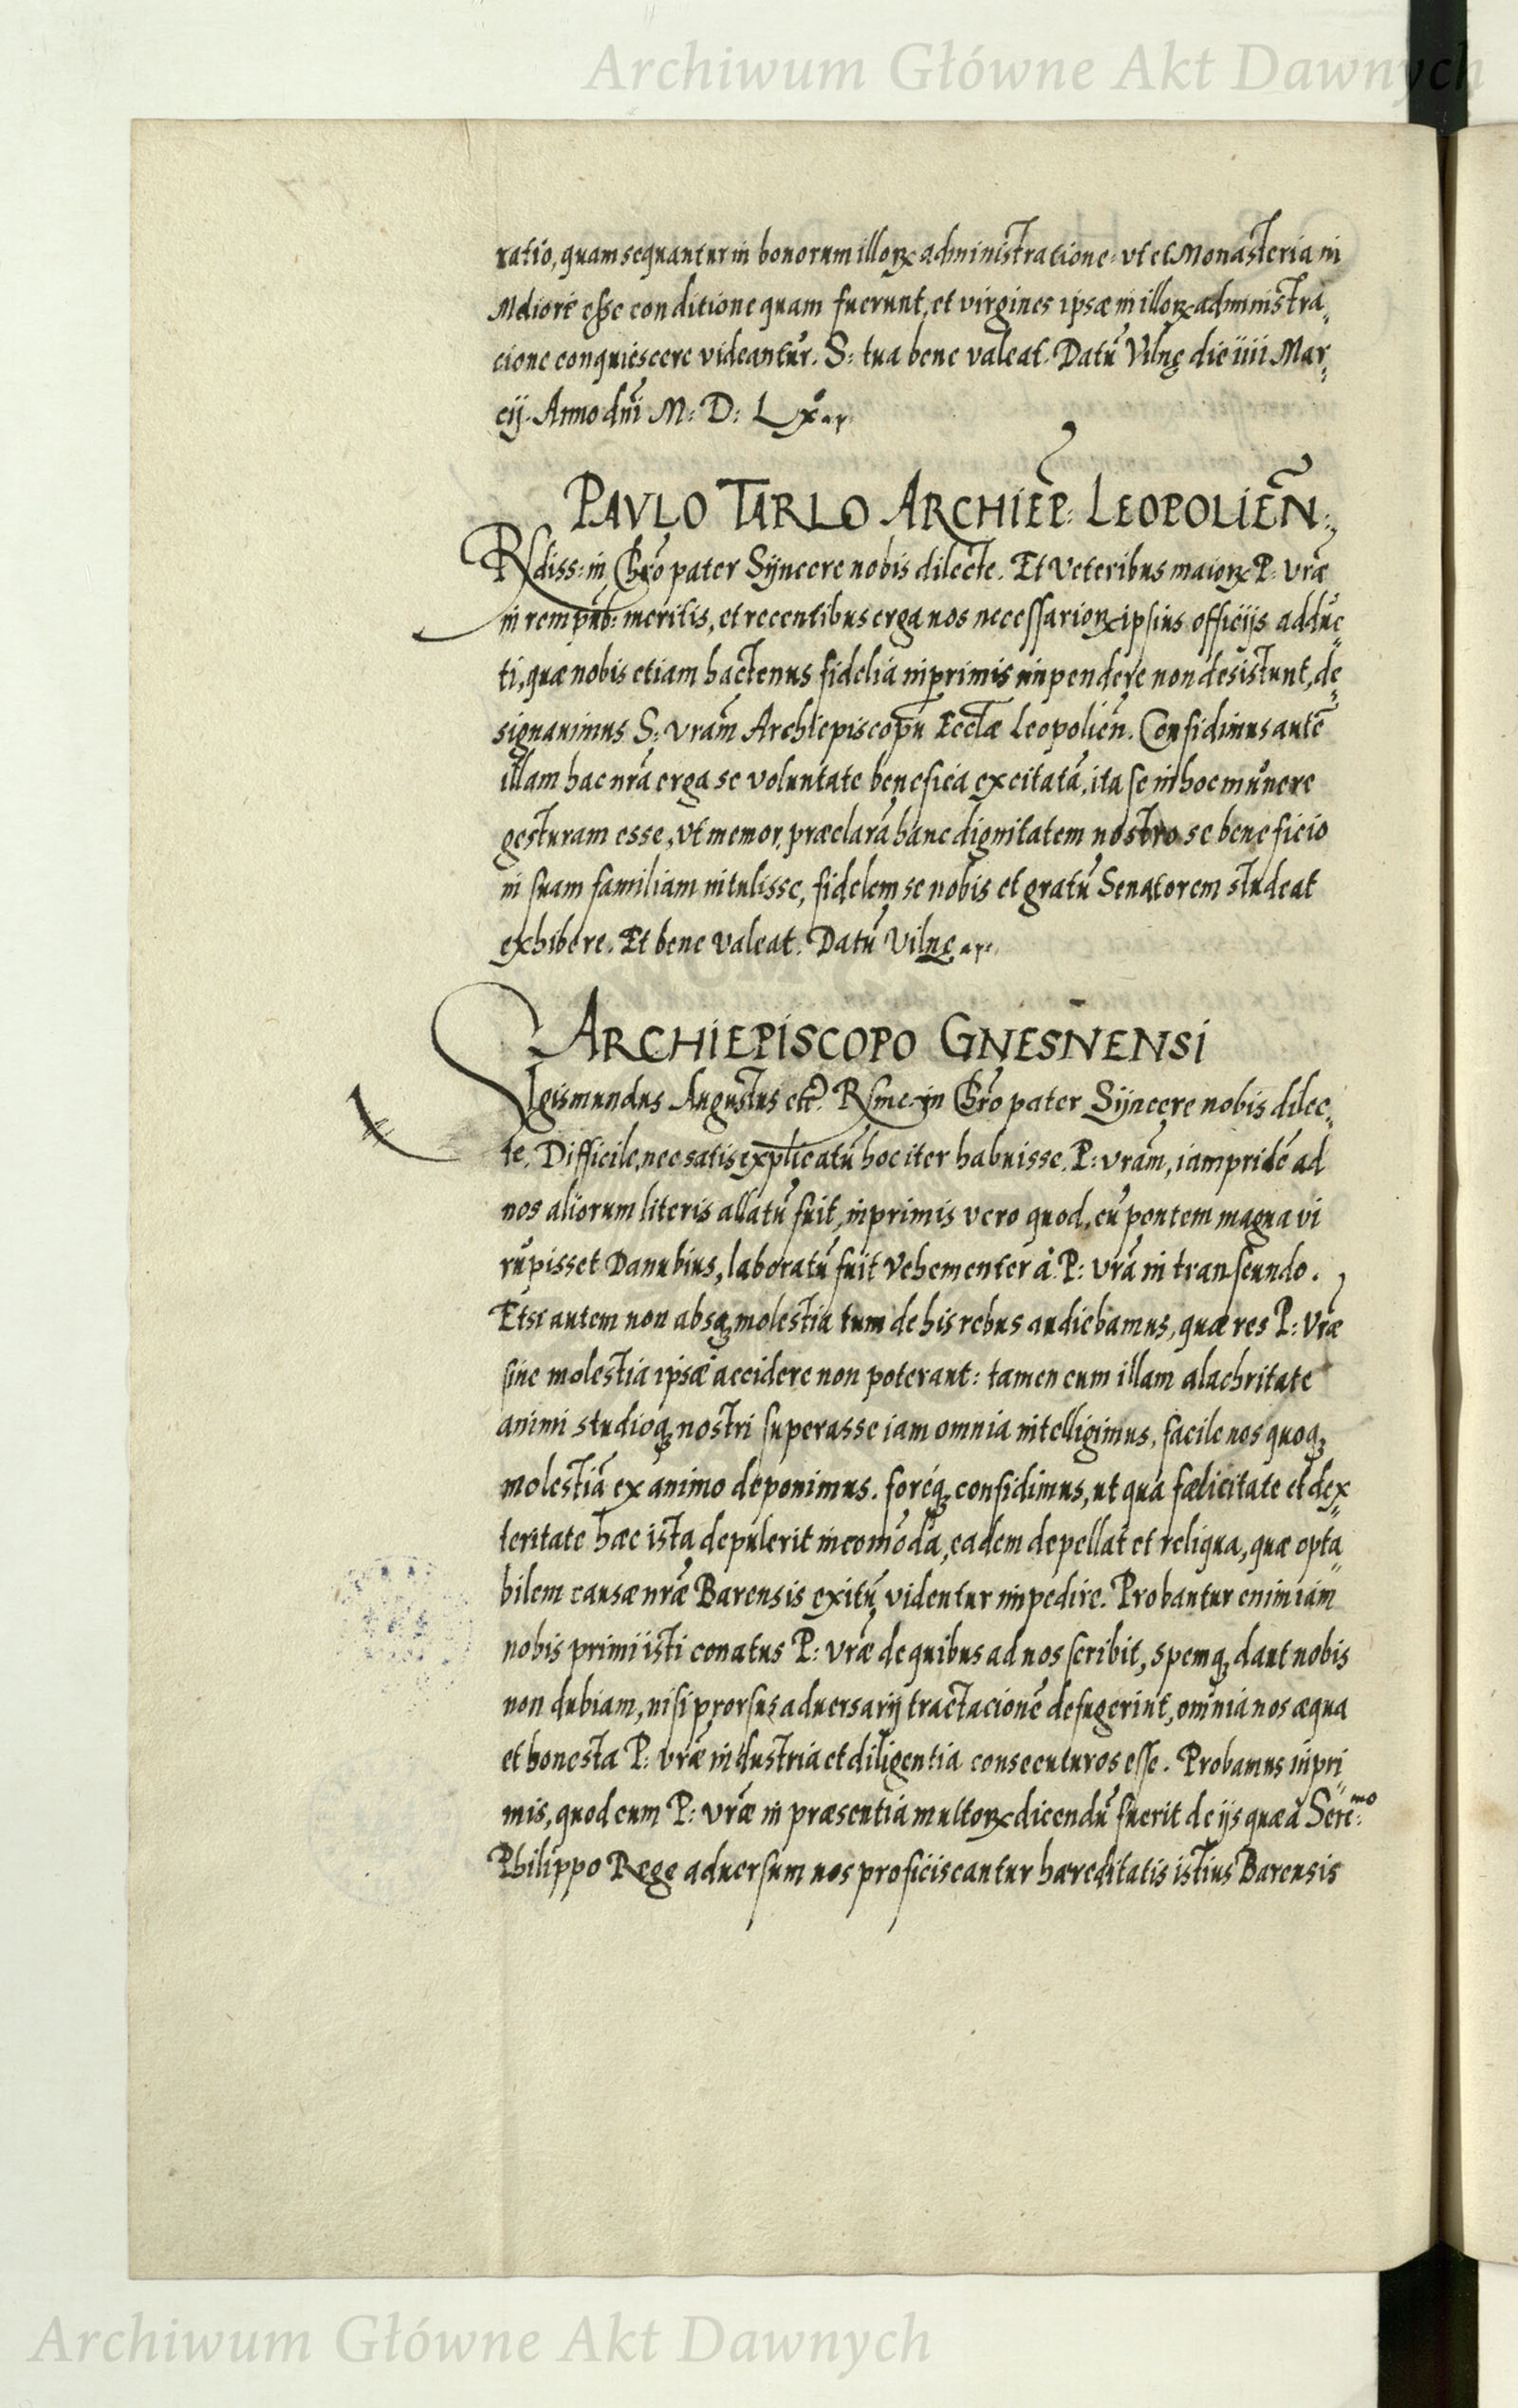 Archiwum Główne Akt Dawnych
ratio, quam sequantur in bonorum illoꝝ administratione: vt et Monasteria in
Meliore esse conditione quam fuerunt, et virgines ipsæ in illoꝝ administra„
cione conquiescere videantur. S: tua bene valeat. Datū Vilnę die iiii Mar„
cij. Anno dñi M: D: Lxº.
PAVLO TARLO ARCHIEP̃: LEOPOLIEÑ:
Rdiss: in Chrō pater Sÿncere nobis dilecte. Et Veteribus maioꝝ P: vrǣ
in rempub: meritis, et recentibus erga nos necessarioꝝ ipsius officijs adduc„
ti, quæ nobis etiam hactenus fidelia inprimis impendere non desistunt, de„
signauimus S: vrām Archiepiscopū Eccłæ Leopolień. Confidimus autē
illam hac nrā erga se voluntate benefica excitatā, ita se in hoc munere
gesturam esse, vt memor, præclarā hanc dignitatem nostro se beneficio
in suam familiam intulisse, fidelem se nobis et gratū Senatorem studeat
exhibere. Et bene valeat. Datū Vilnę
ARCHIEPISCOPO GNESNENSI
SIgismundus Augustus etc̃. Rſme in Chrō pater Sÿncere nobis dilec„
te. Difficile, nec satis explicatū hoc iter habuisse P: vrām, iampridē ad
nos aliorum literis allatū fuit, inprimis vero quod, cū pontem magna vi
rupisset Danubius, laboratū fuit vehementer à P: vrā in transeundo.
Etsi autem non absq; molestia tum de his rebus audiebamus, quæ res P: vrǣ
sine molestia ipsæ accidere non poterant: tamen cum illam alachritate
animi studioq; nostri superasse iam omnia intelligimus, facile nos quoq;
molestiā ex animo deponimus. foreq; confidimus, ut qua fælicitate et dex„
teritate hæc ista depulerit incom̄oda, eadem depellat et reliqua, quæ opta„
bilem causæ nrǣ Barensis exitū videntur impedire. Probantur enim iam
nobis primi isti conatus P: vrǣ de quibus ad nos scribit, spemq; dant nobis
non dubiam, nisi prorsus aduersarij tractacionē defugerint, omnia nos æqua
et honesta P: vrǣ industria et diligentia consecuturos esse. Probamus inpri„
mis, quod cum P: vrǣ in præsentia multoꝝ dicendū fuerit de ijs quæ à Sere:mo
Philippo Rege aduersum nos proficiscantur hæreditatis istius Barensis
Archiwum Główne Akt Dawnych